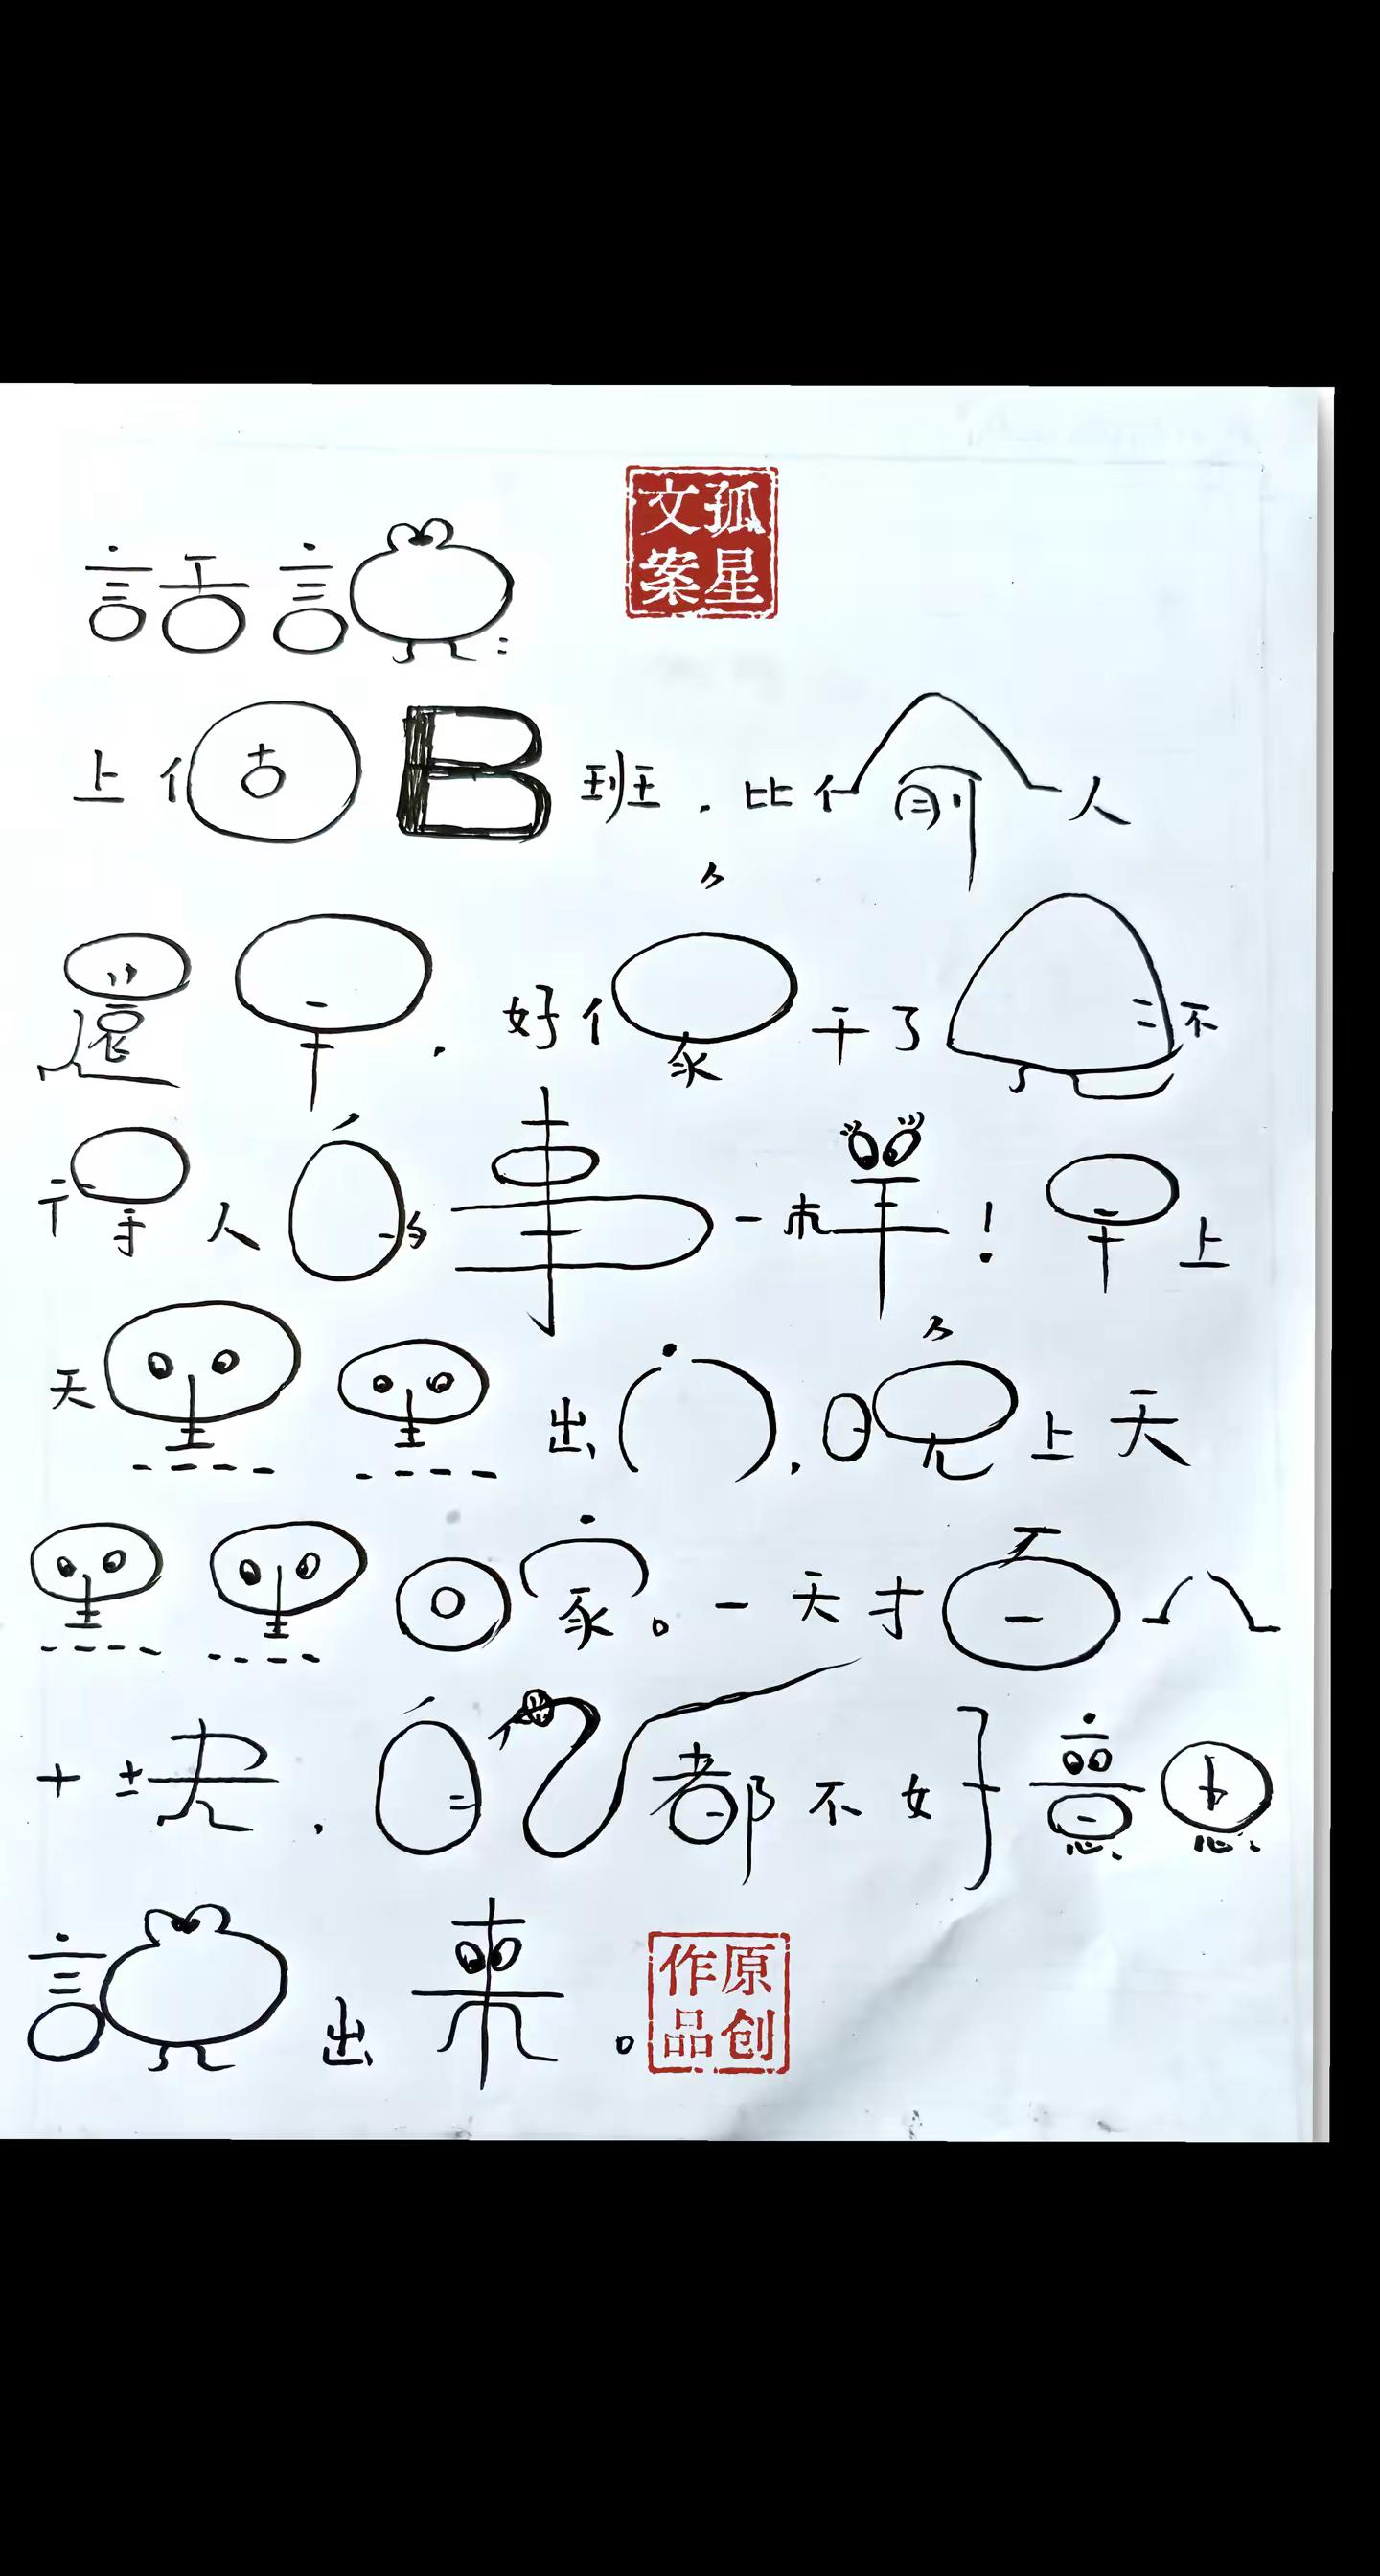 孤星文案
話說：
上個B班，比偷人
還早，好像干了見不
得人的事一樣！早上
天黑黑出门，晚上天
黑黑回家。一天才百八
十塊，自己都不好意思
說出來。
原创作品